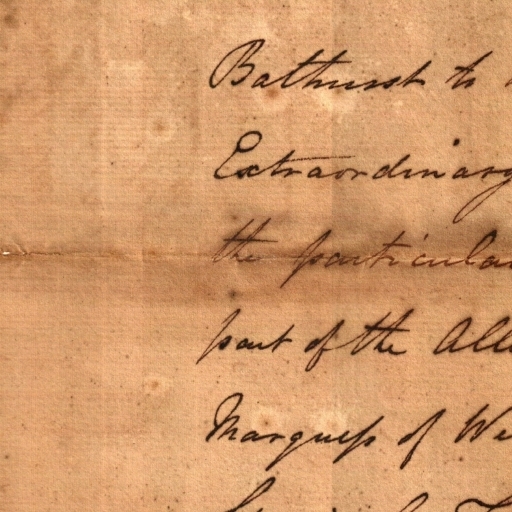 Bathurst to
Extraordinary
the particular
part of the All
Marquess of We